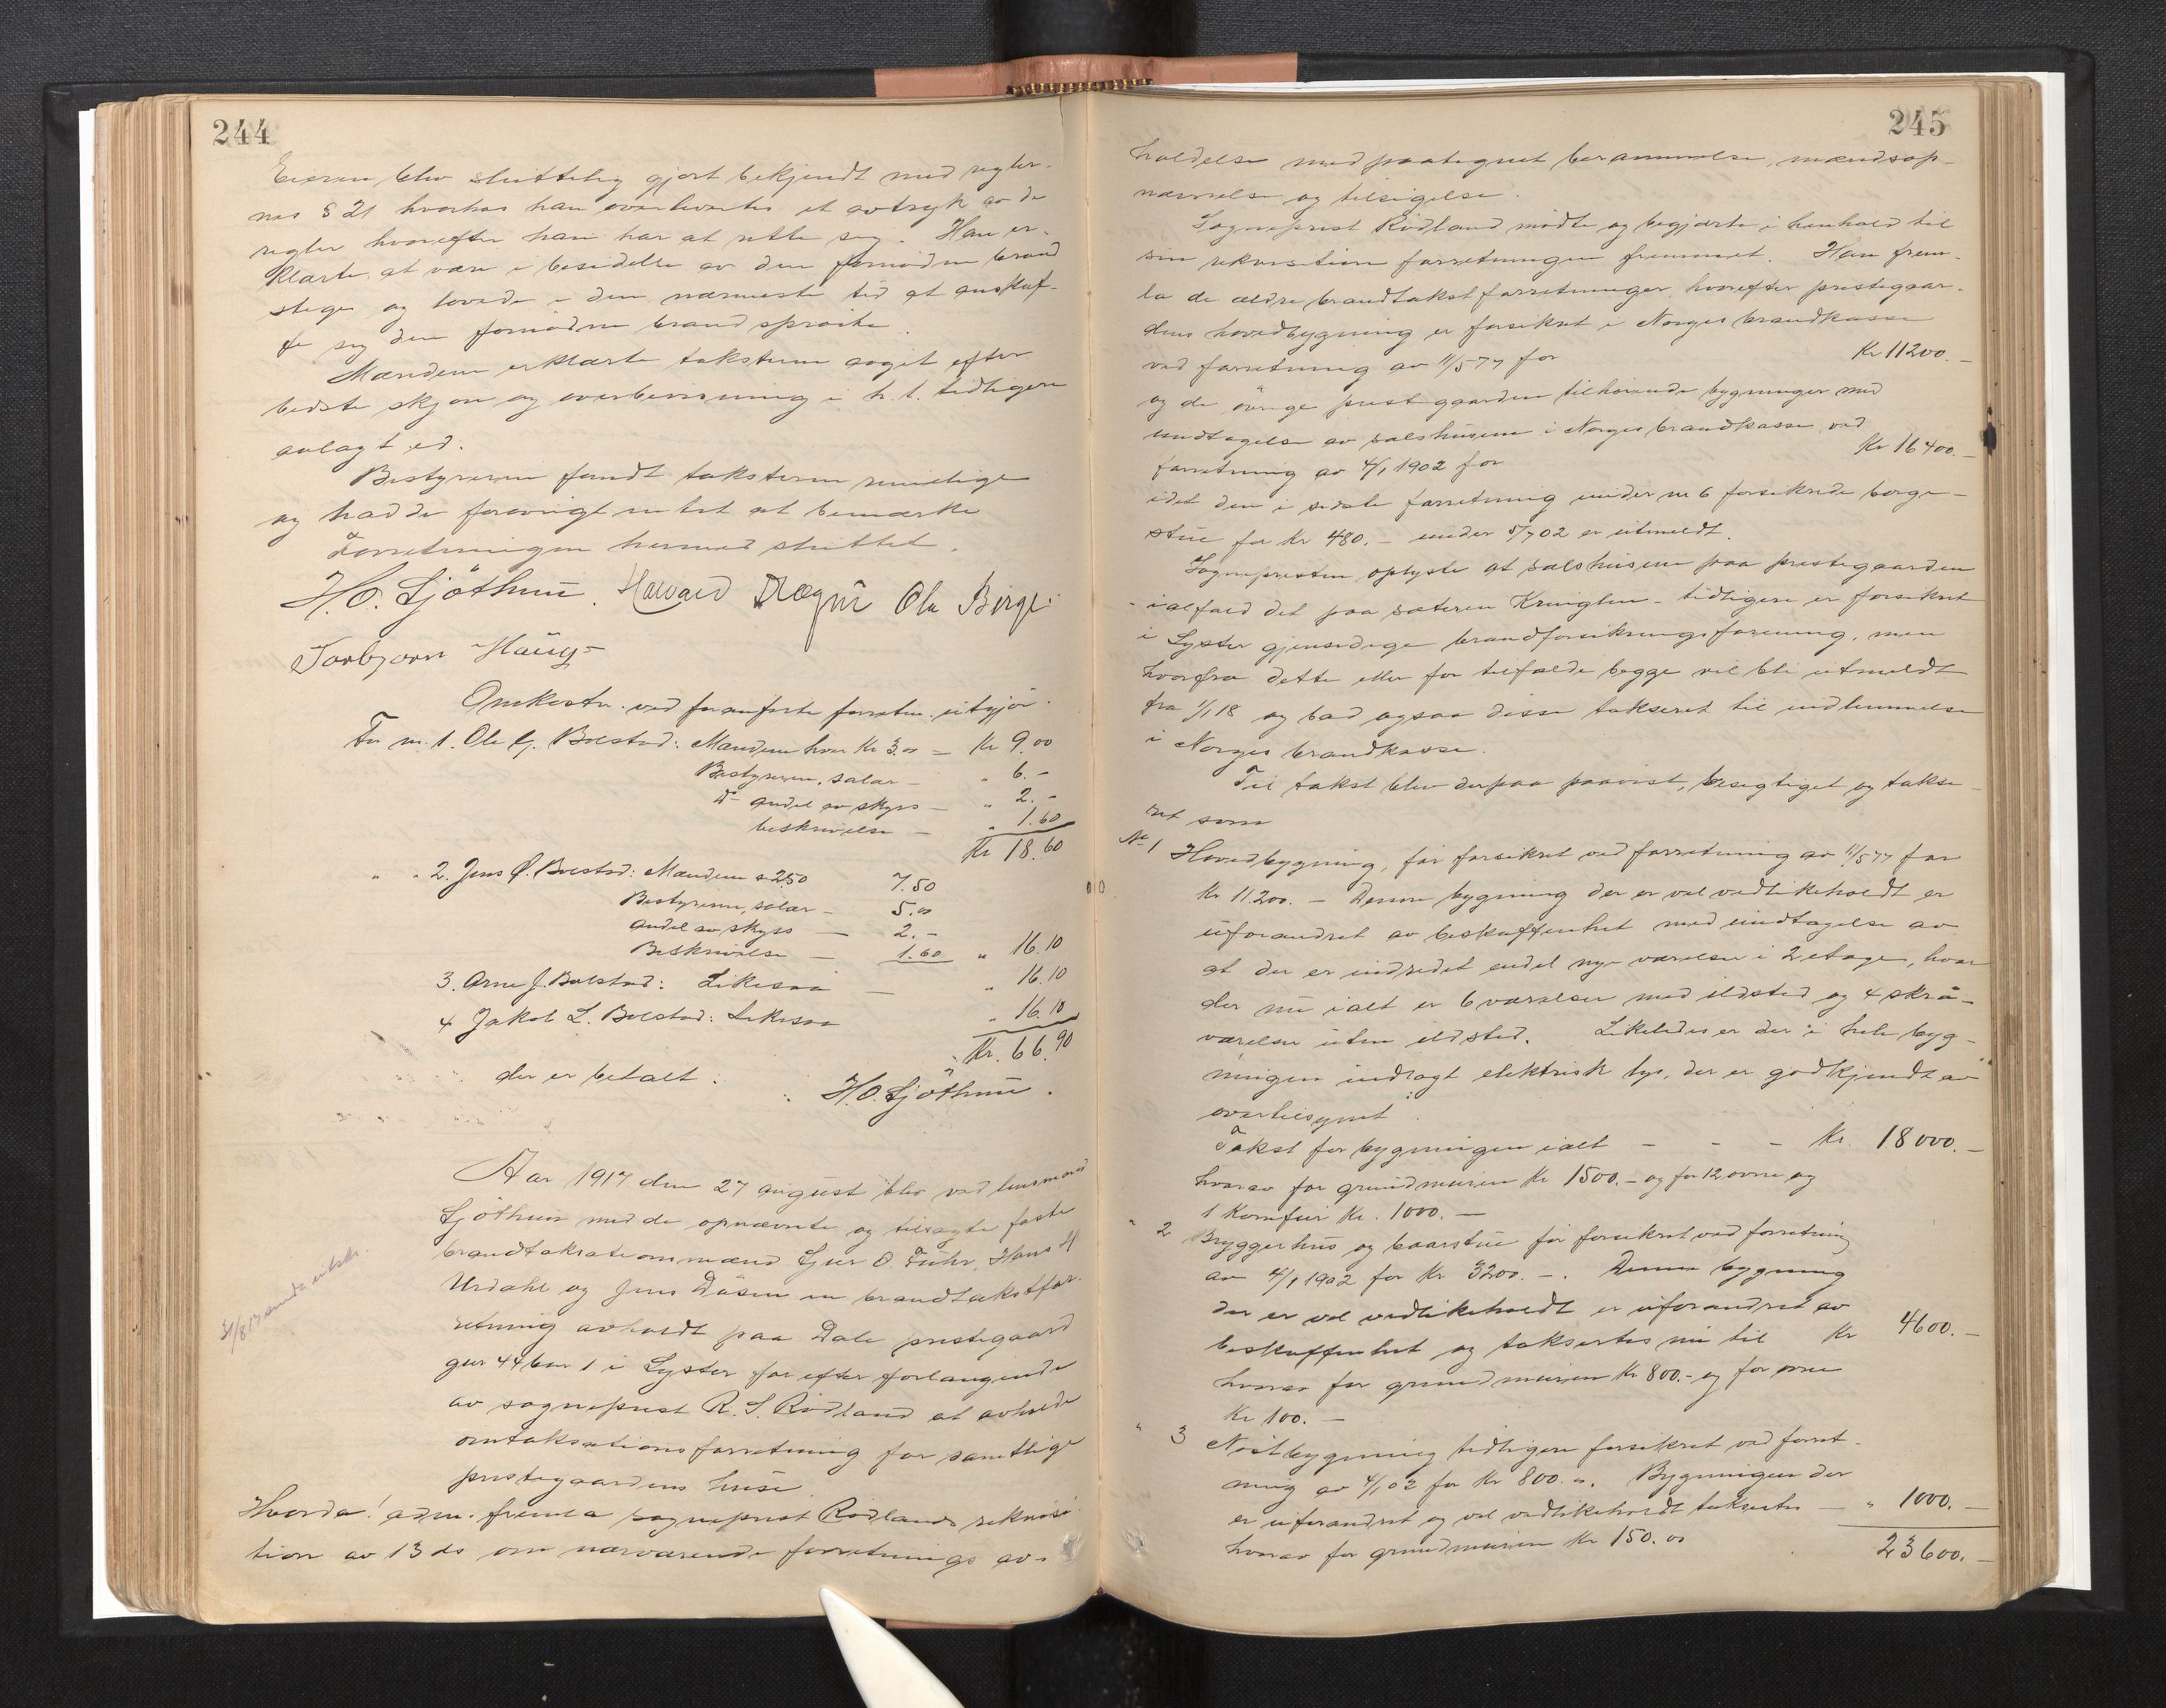 244
Eieren blev sluttelig gjort bekjendt med regler-
nes § 21 hvorhos han overlevertes et avtryk av de
regler hvorefter han har at rette sig. Han er-
klærte at være i besiddelse av den fornødne brand
stige og lovede i den nærmeste tid at anskaf-
fe sig den fornødne brandsprøite.
Mændene erklærte taksterne avgit efter
bedste skjøn og overbevisning i h. t. tidligere
avlagt ed.
Bestyreren fandt taksterne rimelige
og hadde forøvrigt intet at bemærke
Forretningen hermed sluttet.
H. O. Sjøthun. Halvard Dregni Ole Berge
Torbjørn Haug
Omkostn. ved foranførte forretn. utgjør.
For nr. 1. Ole G. Bolstad: Mændene hver Kr 3.00 = Kr 9.00
Bestyreren, salar — " 6.-
Do andel av skyss — " 2.-
beskrivelse — " 1.60
Kr 18.60
" " 2. Jens O. Bolstad: Mændene a 2.50 7.50
Bestyreren, salar — 5.00
andel av skyss — 2.-
Beskrivelse — 1.60 " 16.10
3. Arne J. Bolstad: Likesaa — " 16.10
4 Jakob L. Bolstad: Likesaa " 16.10
Kr. 66.90
der er betalt.
H. O. Sjøthun.
Aar 1917 den 27 august blev ved lensmand
Sjøthun med de opnævnte og tilsagte faste
brandtakstationsmænd Sjur O. Fuhr, Hans H
Urdahl og Jens Døsen en brandtakstfor-
retning avholdt paa Dale prestegaard
gnr 44 bnr 1 i Lyster for efter forlangende
av sogneprest R. S. Rødland at avholde
omtakstationsforretning for samtlige
prestegaardens huse
Hvorda! adm. fremla sogneprest Rødlands rekvisi-
tion av 13 ds om nærværende forretnings av-
245
holdelse med paategnet berammelse, mændsop-
nævnelse og tilsigelse.
Sogneprest Rødland mødte og begjærte i henhold til
sin rekvisition forretningen fremmet. Han frem-
la de ældre brandtakstforretninger, hvorefter prestegaar-
dens hovedbygning er forsikret i Norges brandkasse
ved forretning av 11/5 77 for Kr 11200.-
og de øvrige prestegaarden tilhørende bygninger med
undtagelse av selshusene i Norges brandkasse ved
forretning av 4/1 1902 for Kr 16400.-
idet den i sidste forretning under nr 6 forsikrede borge-
stue for Kr 480.- under 5/7 02 er utmeldt.
Sognepresten oplyste at selshusene paa prestegaarden
- ialfald det paa sæteren Kringlen - tidligere er forsikret
i Lyster gjensidige brandforsikringsforening, men
hvorfra dette eller for tilfælde begge vil bli utmeldt
fra 1/1 18 og bad ogsaa disse takseret til indlemmelse
i Norges brandkasse.
Til takst blev derpaa paavist, besigtiget og takse-
ret som
No 1 Hovedbygning, før forsikret ved forretning av 11/5 77 for
Kr 11.200.- Denne bygning der er vel vedlikeholdt er
uforandret av beskaffenhet med undtagelse av
at der er indredet endel nye værelser i 2 etage, hvor
der nu ialt er 6 værelser med ildsted og 4 skrå-
værelser uten ildsted. Likeledes er der i hele byg-
ningen indlagt elektrisk lys, der er godkjendt av
overtilsynet.
Takst for bygningen ialt - - - Kr. 18000.-
hvorav for grundmuren Kr 1500.- og for 12 ovne og
1 Komfur Kr. 1000.-
" 2 Bryggerhus og baarstue før forsikret ved forretning
av 4/1 1902 for Kr 3200.-. Denne bygning
der er vel vedlikeholdt er uforandret av
beskaffenhet og taksertes nu til Kr 4600.-
hvorav for grundmuren Kr 800.- og for ovne
Kr 100.-
" 3 Nøstbygning tidligere forsikret ved forret-
ning av 4/1 02 for Kr 800.-. Bygningen der
er uforandret og vel vedlikeholdt taksertes — " 1000.-
hvorav for grundmuren Kr 150.00
23600.-